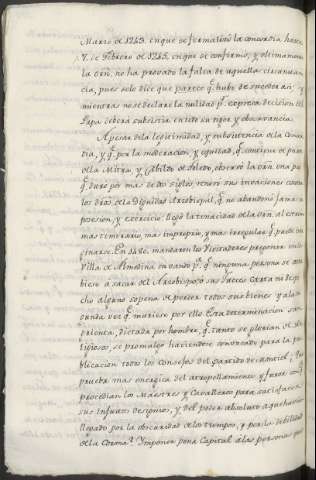 Marzo de 1243. en que se formalizó la concordia hasta
7. de Febrero de 1245. en que se confirmó, y ultimamente
la orn̄. no ha probado la falta de aquellas circunstan
cia, pues solo dice que parece q.e hubo de suceder asi, y
mientras no se declare la nulidad p.r expresa decision del
Papa deberá subsistir en todo su vigor, y observancia.
A pesar de la legitimidad, y subsistencia de la Concor
dia, y q.e por la moderacion, y equidad, q.e contiene de parte
de la Mitra, y Cabildo de Toledo, observó la orn̄. una paz
q.e duró por mas de dos siglos, renovó sus invasiones contra
los dros. de la Dignidad Arzobispal, q.e no abandonó jamas su
posesion, y exercicio. Llegó la tenacidad de la orn̄. al extremo
mas temerario, mas improprio, y mas irregular q.e puede ima
ginarse. En 1480. mandaron los Visitadores pregonar en la
villa de Almedina ordenando p.a q.e ninguna persona se atre
biese a sacar del Arzobispo, o sus Jueces Carta ni despa
cho alguno sopena de perder todos sus bienes y a la
segunda vez q.e muriese por ello. Esta determinacion san
grienta, dictada por hombres, q.e tanto se glorian de Re
ligiosos, se promulgó haviendose convocado para la pu
blicacion todos los Consejos del partido de Montiel; Que
prueba mas energica del atropellamiento, y furor con q.e
procedian los Maestres y Cavalleros para satisfacer
sus injustos designios, y del poder absoluto a que havian
llegado por la obscuridad de los tiempos, y por la debilidad
de la Corona? Imponer pena Capital a las personas que